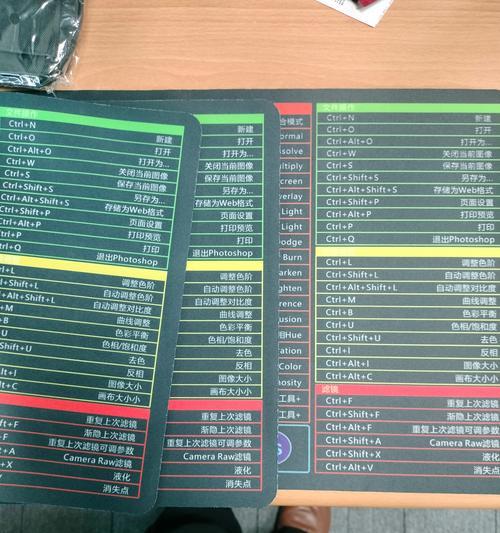 文件操作
Ctrl+N 新建
Ctrl+O 打开
Ctrl+Alt+O 打开为...
Ctrl+W 关闭当前图像
Ctrl+S 保存当前图像
Ctrl+Shift+S 另存为...
Ctrl+Alt+Shift+S 存储为Web格式
Ctrl+Shift+P 页面设置
Ctrl+Alt+P 打印预览
trl+P 打印
trl+Q 退出Photoshop
+L 调整色阶
+Shift+L 自动调整色阶
+Alt+Shift+L 自动调整对比度
+M 曲线调整
+B 色彩平衡
+U 色相/饱和度
Shift+U 去色
+I 反相
+Alt+I 图像大小
+Alt+C 画布大小
+F 重复上次滤镜
Shift+F 渐隐上次滤镜
Alt+F 重复上次滤镜可调参数
Shift+A Camera Raw滤镜
Shift+X 液化
Alt+V 消失点
新建
打开
打开为...
关闭当前图像
保存当前图像
另存为...
存储为Web格式
页面设置
打印预览
打印
退出Photoshop
调整色阶
自动调整色阶
自动调整对比度
曲线调整
色彩平衡
色相/饱和度
去色
反相
图像大小
画布大小
重复上次滤镜
渐隐上次滤镜
重复上次滤镜可调参数
Camera Raw滤镜
液化
消失点
合模式
ormal
ssolve
ultiply
creen
verlay
Light
Light
odge
Burn
arken
ghten
erence
usion
相Hue
ration
Color
nosity
工具+
工具+
文件操作
Ctrl+N 新建
Ctrl+O 打开
Ctrl+Alt+O 打开为...
Ctrl+W 关闭当前图像
Ctrl+S 保存当前图像
Ctrl+Shift+S 另存为...
Ctrl+Alt+Shift+S 存储为Web格式
Ctrl+Shift+P 页面设置
Ctrl+Alt+P 打印预览
Ctrl+P 打印
Ctrl+Q 退出Photoshop
Ctrl+L 调整色阶
Ctrl+Shift+L 自动调整色阶
Ctrl+Alt+Shift+L 自动调整对比度
Ctrl+M 曲线调整
Ctrl+B 色彩平衡
Ctrl+U 色相/饱和度
Ctrl+Shift+U 去色
Ctrl+I 反相
Ctrl+Alt+I 图像大小
Ctrl+Alt+C 画布大小
滤镜
Ctrl+F 重复上次滤镜
Ctrl+Shift+F 渐隐上次滤镜
Ctrl+Alt+F 重复上次滤镜可调参数
Ctrl+Shift+A Camera Raw滤镜
Ctrl+Shift+X 液化
Ctrl+Alt+V 消失点